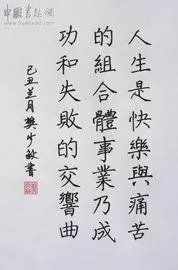 中国书法网
人生是快樂與痛苦
的組合體事業乃成
功和失敗的交響曲
己丑兰月樊少敏書